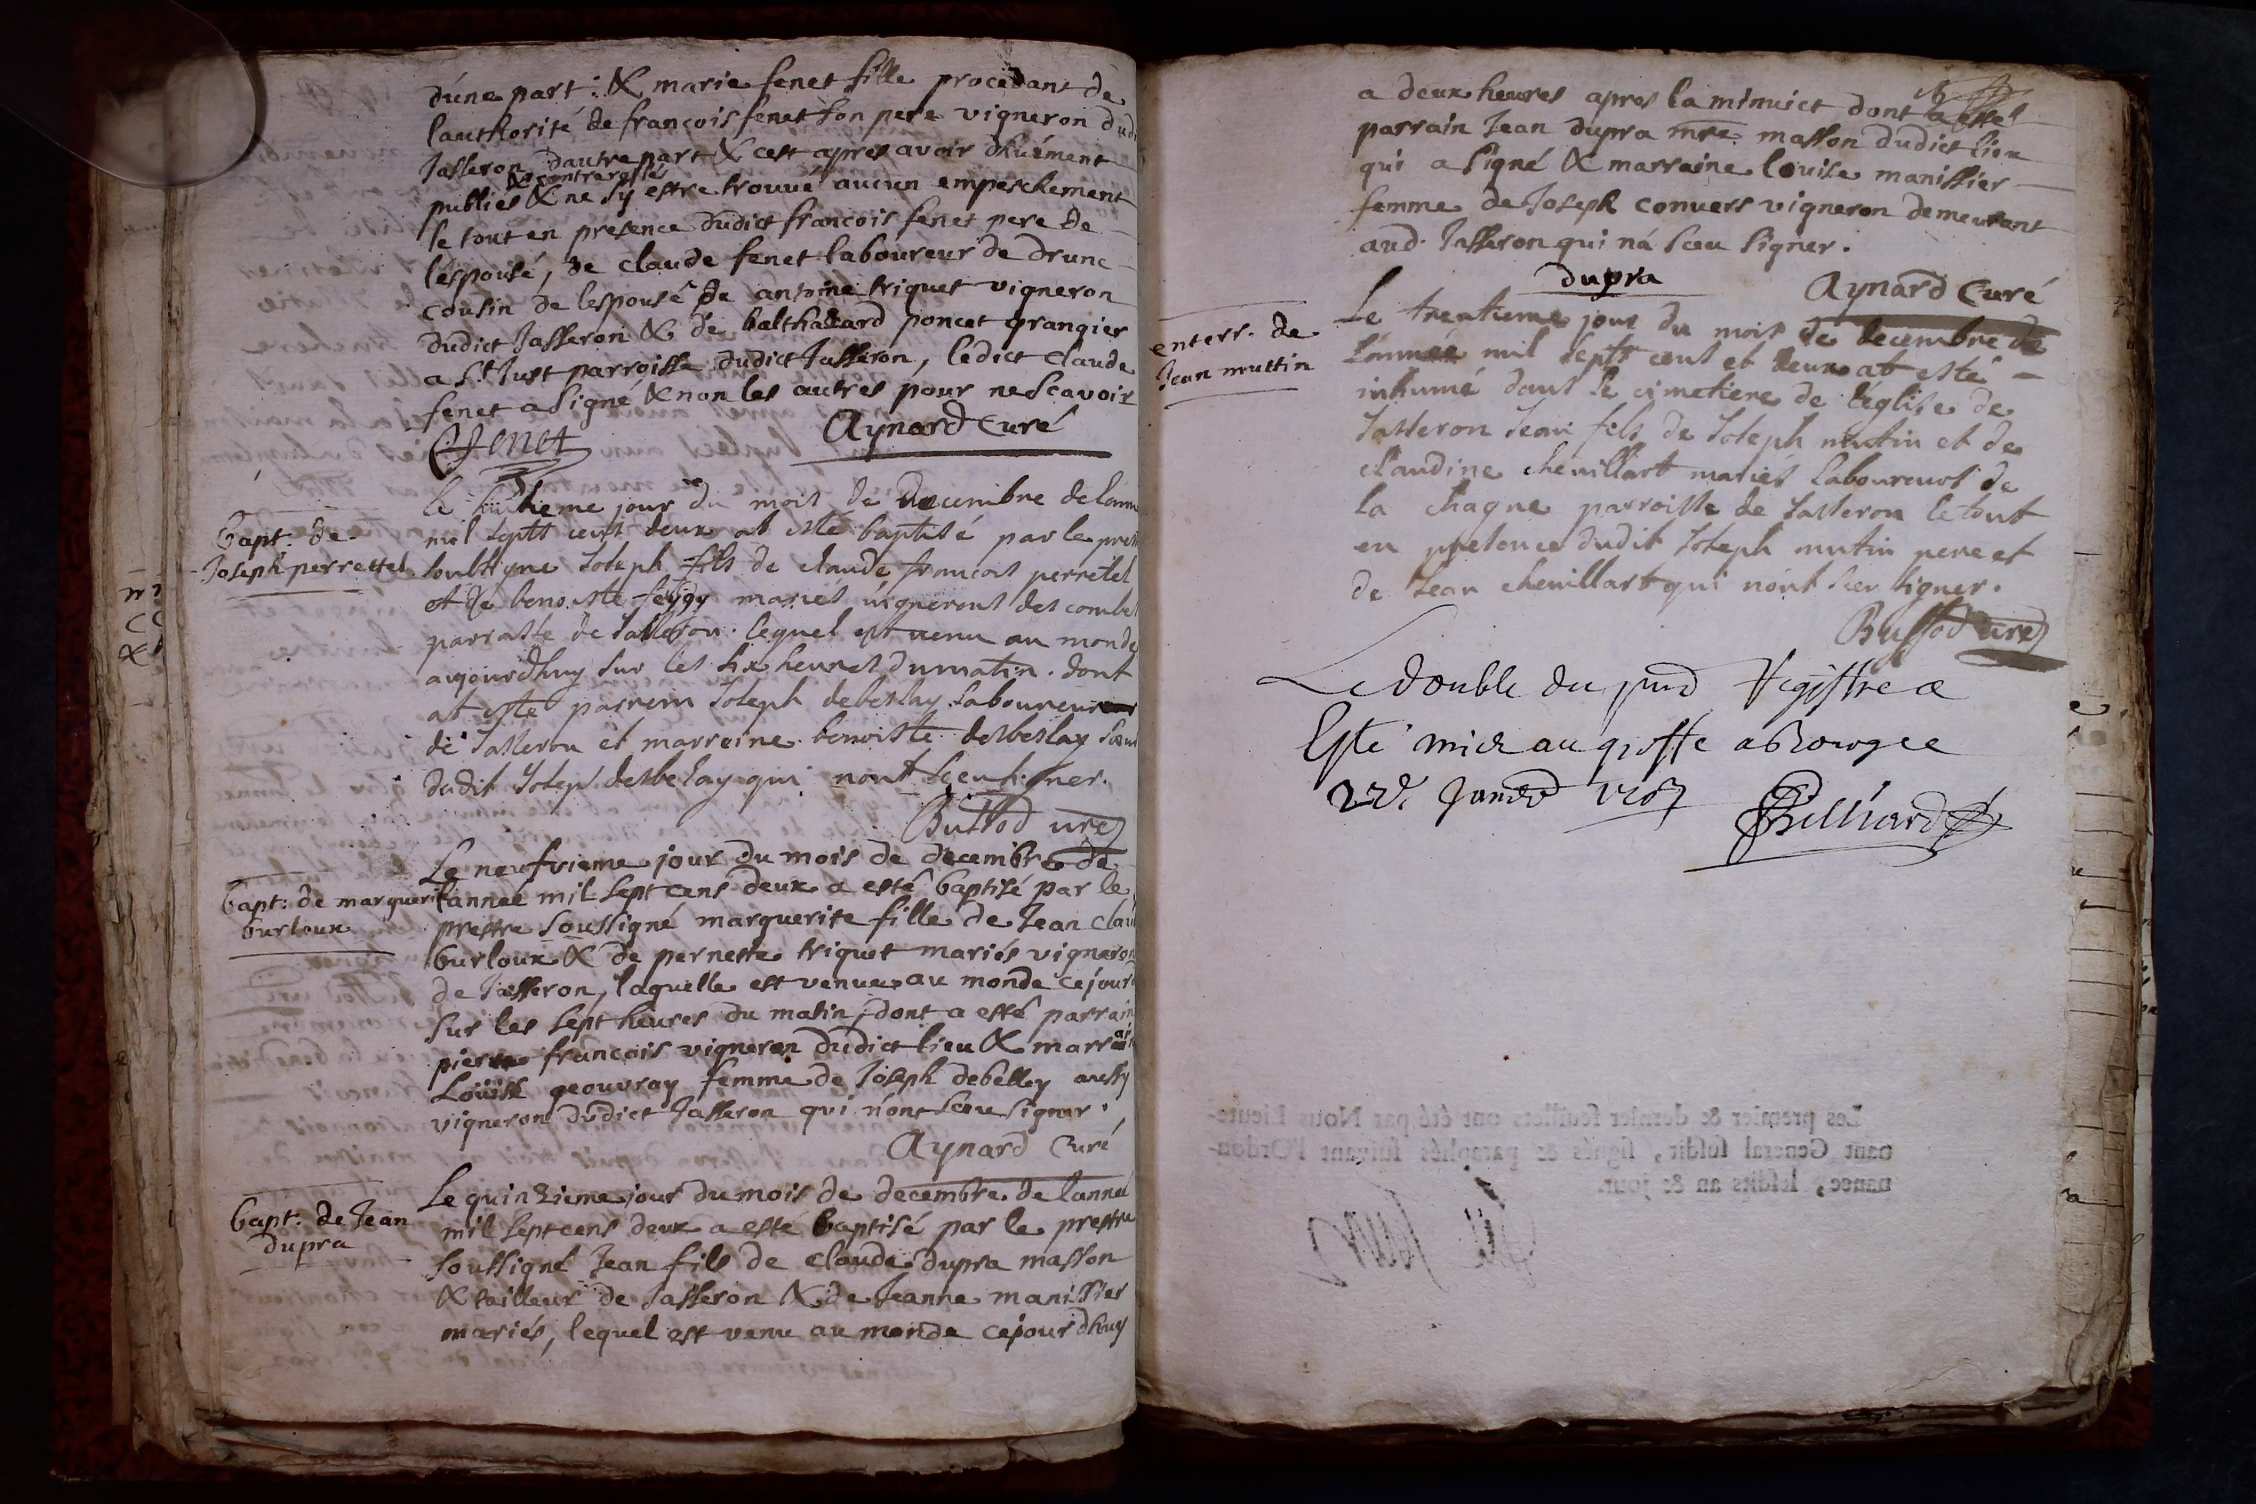 d'une part: & marie fenet fille procedant de
lauthorité de françois fenet son pere vigneron dud
Jasseron dautre part & cest apres avoir dhuément
& controrollé
publiés & ne s'y estre trouvé aucun empeschement
le tout en presence dudict francois fenet pere de
lespousé, de claude fenet laboureur de drunc
cousin de lespousé de antoine triquet vigneron
dudict Jasseron & de balthazard poncet grangier
a St Just parroisse dudict Jasseron, ledict claude
fenet a signé & non les autres pour ne scavoir
C fenet
Aynard Curé
Bapt: de
Joseph perrettel
le huitieme jour du mois de Decembre de lanne
mil septs cent deux at esté baptisé par le pre
soubsigne Joseph fils de claude francois perretel
et de benoiste feygy mariés vignerons des combes
parroisse de Jasseron. lequel est venu au monde
aujourdhuy sur les six heures du matin. dont
at esté parrein Joseph debeslay laboureur
de Jasseron et marreine benoiste desbeslay sœur
dudit Joseph desbelay qui nont sceu signer.
Buffod vre
Bapt: de marguerite
burloux
Le neufvieme jour du mois de decembre de
lannee mil sept cens deux a esté baptisé par le
prestre soussigné marguerite fille de Jean clau
burloux & de pernette triquet mariés vigneron
de Jasseron, laquelle est venue au monde ce jour
sur les sept heures du matin, dont a esté parrain
pierre francois vigneron dudict lieu & marrai
Louise geouvray femme de Joseph debelley aussy
vigneron dudict Jasseron qui n'ont sceu signer.
Aynard Curé
Bapt: de Jean
dupra
Le quinzieme jour du mois de decembre de lannee
mil sept cens deux a esté baptisé par le prestre
soussigné Jean fils de claude dupra masson
& tailleur de Jasseron & de Jeanne manissier
mariés, lequel est venu au monde cejourdhuy
a deux heures apres la minuict dont a esté
parrain Jean dupra mre masson dudict lieu
qui a signé & marraine louise manissier
femme de Joseph convers vigneron demeurant
aud. Jasseron qui n'a sceu signer.
dupra
Aynard Curé
enterr. de
Jean muttin
Le trentieme jour du mois de decembre de
l'année mil septs cent et deux at esté
inhumé dans le cimetiere de l'église de
Jasseron Jean fils de Joseph mutin et de
claudine chevillart mariés laboureurs de
la chagne parroisse de Jasseron le tout
en presence dudit Joseph mutin pere et
de Jean chevillart qui n'ont sceu signer.
Buffod vre
Le double du pnd Registre a
Esté mis au greffe a Bourg ce
Billiard
Les premier & dernier feuillets ont été par Nous Lieute-
nant General susdit, signés & paraphés suivant l'Ordon-
nance, lesdits an & jour.